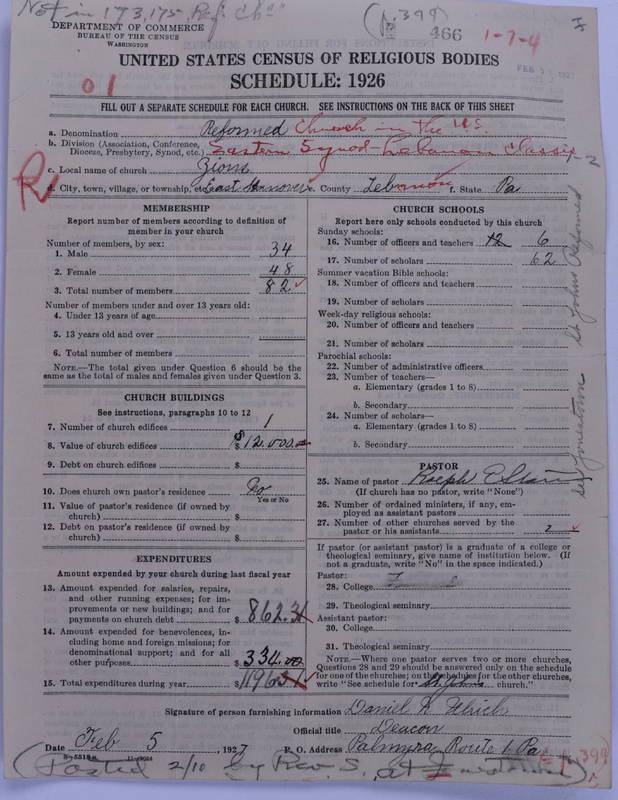 Not in 173,175, Ref. Chs
DEPARTMENT OF COMMERCE
BUREAU OF THE CENSUS
WASHINGTON
399
466
1-7-4
UNITED STATES CENSUS OF RELIGIOUS BODIES
SCHEDULE: 1926
01
FILL OUT A SEPARATE SCHEDULE FOR EACH CHURCH. SEE INSTRUCTIONS ON THE BACK OF THIS SHEET
a. Denomination Reformed Church in the U.S.
b. Division (Association, Conference, Diocese, Presbytery, Synod, etc.) Eastern Synod-Lebanon Classis-2
c. Local name of church Zions
R
d. City, town, village, or township East Hanover e. County Lebanon f. State Pa
MEMBERSHIP
Report number of members according to definition of
member in your church
Number of members, by sex:
1. Male 34
2. Female 48
3. Total number of members 82
Number of members under and over 13 years old:
4. Under 13 years of age
5. 13 years old and over
6. Total number of members
NOTE.—The total given under Question 6 should be the
same as the total of males and females given under Question 3.
CHURCH BUILDINGS
See instructions, paragraphs 10 to 12
7. Number of church edifices 1
8. Value of church edifices $12.000.00
9. Debt on church edifices $
10. Does church own pastor's residence No
Yes or No
11. Value of pastor's residence (if owned by
church) $
12. Debt on pastor's residence (if owned by
church) $
EXPENDITURES
Amount expended by church during last fiscal year
13. Amount expended for salaries, repairs,
and other running expenses; for im-
provements or new buildings; and for
payments on church debt $ 862.31
14. Amount expended for benevolences, in-
cluding home and foreign missions; for
denominational support; and for all
other purposes $ 334.00
15. Total expenditures during year $ 1196 31
CHURCH SCHOOLS
Report here only schools conducted by this church
Sunday schools:
16. Number of officers and teachers 12 6
17. Number of scholars 62
Summer vacation Bible schools:
18. Number of officers and teachers
19. Number of scholars
Week-day religious schools:
20. Number of officers and teachers
21. Number of scholars
Parochial schools:
22. Number of administrative officers
23. Number of teachers—
a. Elementary (grades 1 to 8)
b. Secondary
24. Number of scholars—
a. Elementary (grades 1 to 8)
b. Secondary
PASTOR
25. Name of pastor Ralph E Starr
(If church has no pastor, write "None")
26. Number of ordained ministers, if any, em-
ployed as assistant pastors
27. Number of other churches served by the
pastor or his assistants 2
If pastor (or assistant pastor) is a graduate of a college or
theological seminary, give name of institution below. (If
not a graduate, write "No" in the space indicated.)
Pastor:
28. College
29. Theological seminary
Assistant pastor:
30. College
31. Theological seminary
NOTE.—Where one pastor serves two or more churches,
Questions 28 and 29 should be answered only on the schedule
for one of the churches; on the schedules for the other churches,
write "See schedule for St. Johns church."
See Jonestown St Johns Reformed
Signature of person furnishing information Daniel N. Ulrich
Official title Deacon
Date Feb 5, 1927 P. O. Address Palmyra Route 1 Pa
(Posted 2/10 by Rev. S. at Jonestown)
399